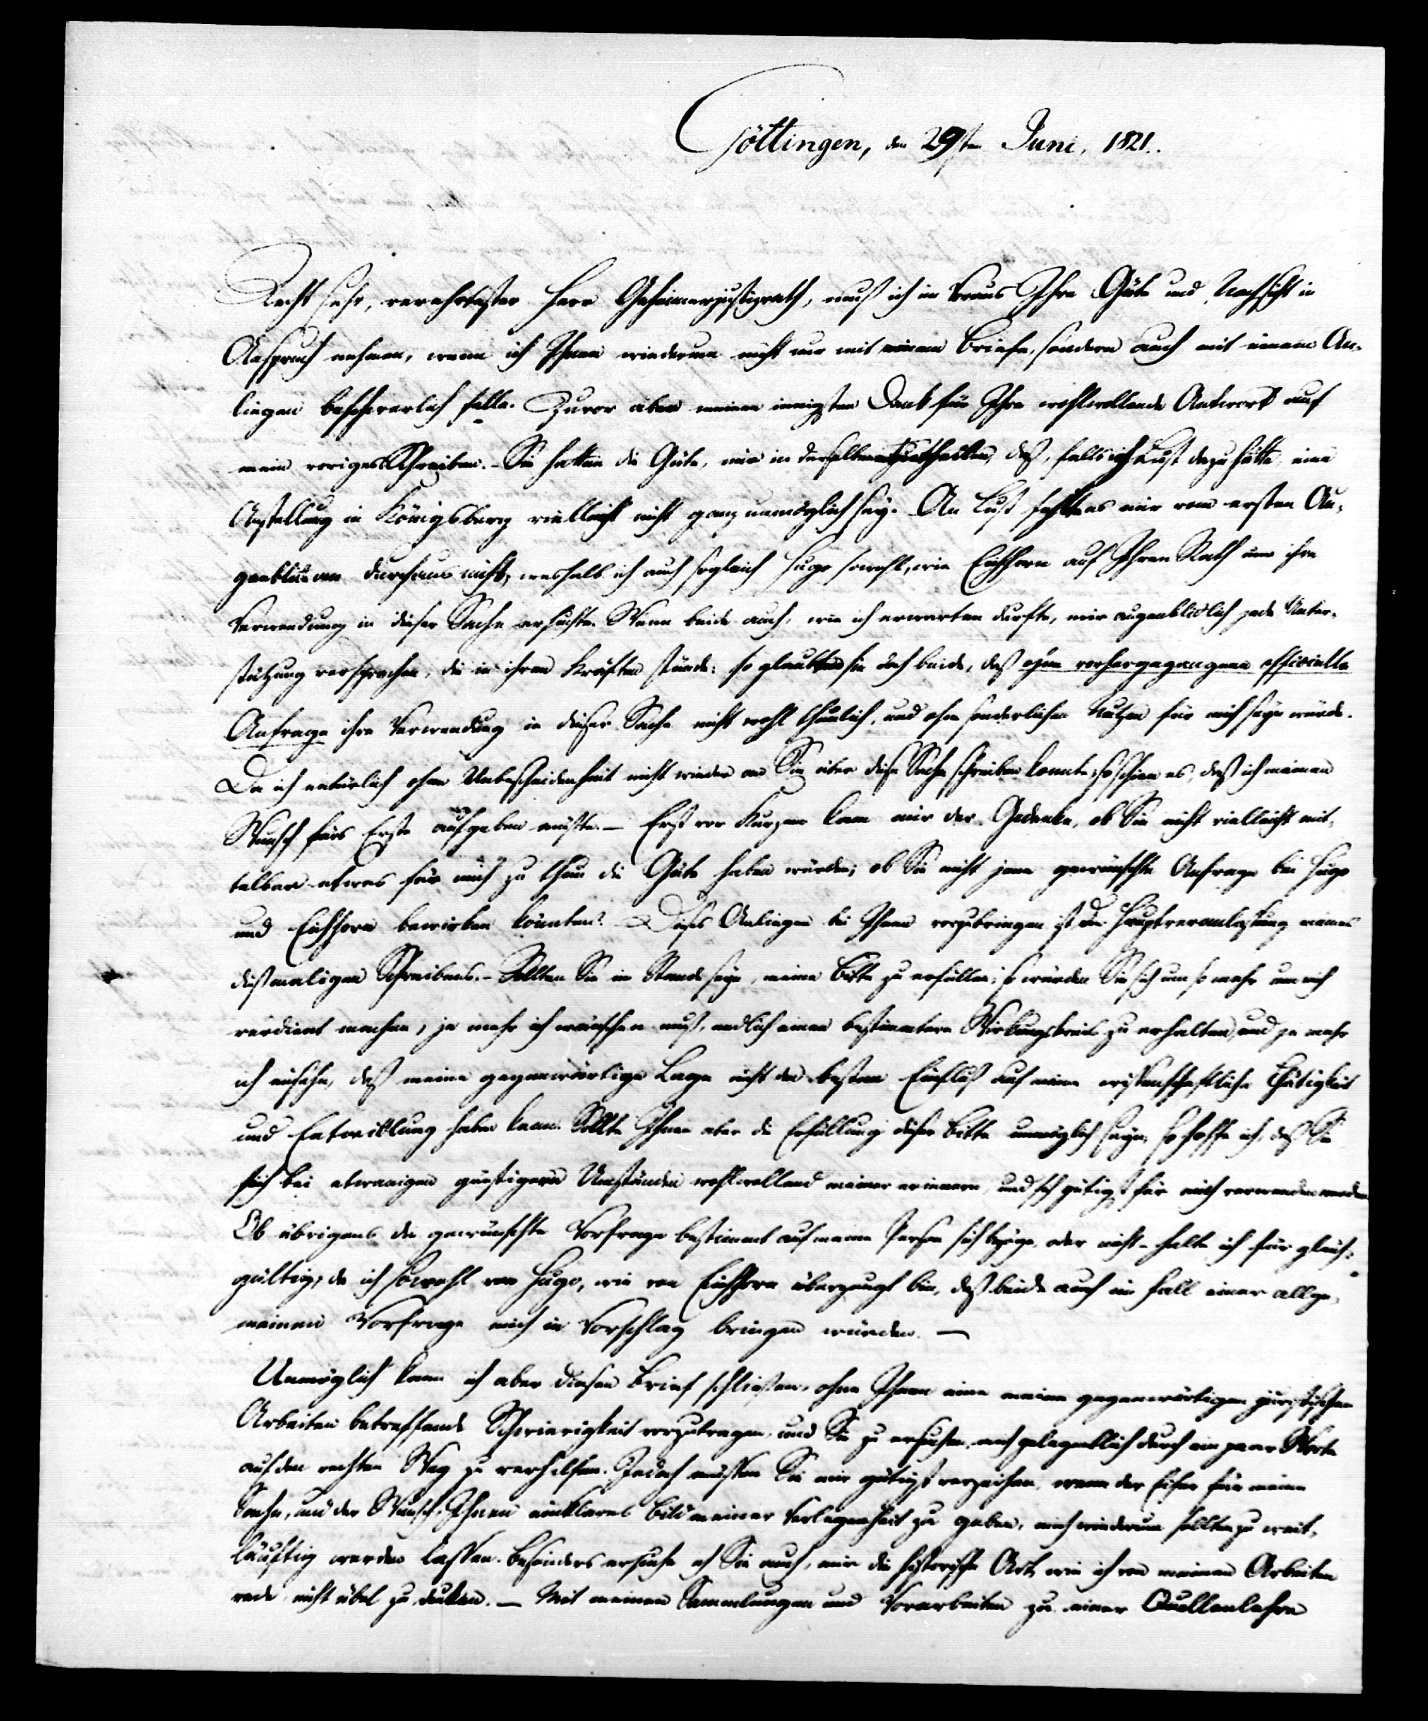 Göttingen, den 29sten Juni, 1821.
Recht sehr, verehrtester Herr Geheimerjustizrath, muß ich im Voraus Ihre Güte und Nachsicht in
Anspruch nehmen, wenn ich Ihnen wiederum nicht nur mit einem Briefe, sondern auch mit einem An-
liegen beschwerlich falle. Zuvor aber meinen innigsten Dank für Ihre wohlwollende Antwort auf
mein voriges Schreiben. – Sie hatten die Güte, mir in derselben daß, falls ich Lust dazu hätte, eine
Anstellung in Königsberg vielleicht nicht ganz unmöglich sey. An Lust fehlte es mir vom ersten Au-
genblick an durchaus nicht, weshalb ich auch sogleich Hugo sowohl, wie Eichhorn auf Ihren Rath um ihre
Verwendung in dieser Sache ersuchte. Wenn beide auch, wie ich erwarten durfte, mir augenblicklich jede Unter-
stützung versprachen, die in ihren Kräften stünde: so glaubten sie doch beide, daß ohne vorhergegangene officielle
Anfrage ihre Verwendung in dieser Sache nicht wohl thunlich, und ohne sonderlichen Nutzen für mich seyn würde.
Da ich natürlich ohne Unbescheidenheit nicht wieder an Sie über diese Sache schreiben konnte, so schien es, daß ich meinen
Wunsch fürs Erste aufgeben müßte. – Erst vor Kurzem kam mir der Gedanke, ob Sie nicht vielleicht mit-
telbar etwas für mich zu thun die Güte haben würden; ob Sie nicht jene gewünschte Anfrage bei Hugo
und Eichhorn bewirken könnten? Dieses Anliegen bei Ihnen vorzubringen ist die Hauptveranlassung meines
dießmaligen Schreibens. – Sollten Sie im Stande seyn, meine Bitte zu erfüllen; so würden Sie sich um so mehr um mich
verdient machen, je mehr ich wünschen muß, endlich einen bestimmtern Wirkungskreis zu erhalten, und je mehr
ich einsehe, daß meine gegenwärtige Lage nicht den besten Einfluß auf meine wissenschaftliche Thätigkeit
und Entwicklung haben kann. Sollte Ihnen aber die Erfüllung dieser Bitte unmöglich seyn, so hoffe ich, daß Sie
sich bei etwanigen günstigern Umständen wohlwollend meiner erinnern, und sich gütigst für mich verwenden werden.
Ob übrigens die gewünschte Vorfrage bestimmt auf meine Person sich bezöge oder nicht – halte ich für gleich-
gültig, da ich sowohl von Hugo, wie von Eichhorn überzeugt bin, daß beide auch im Fall einer allge-
meinen Vorfrage mich in Vorschlag bringen würden. –
Unmöglich kann ich aber diesen Brief schließen, ohne Ihnen eine meine gegenwärtigen juristischen
Arbeiten betreffende Schwierigkeit vorzutragen, und Sie zu ersuchen, mich gelegentlich durch ein paar Worte
auf den rechten Weg zu verhelfen. Jedoch müssen Sie mir gütigst verzeihen, wenn der Eifer für meine
Sache, und der Wunsch, Ihnen ein klares Bild meiner Verlegenheit zu geben, mich wiederum sollten zu weit-
läuftig werden lassen. Besonders ersuche ich Sie auch, mir die historische Art, wie ich von meinen Arbeiten
rede, nicht übel zu deuten. – Mit meinen Sammlungen und Vorarbeiten zu einer Quellenlehre